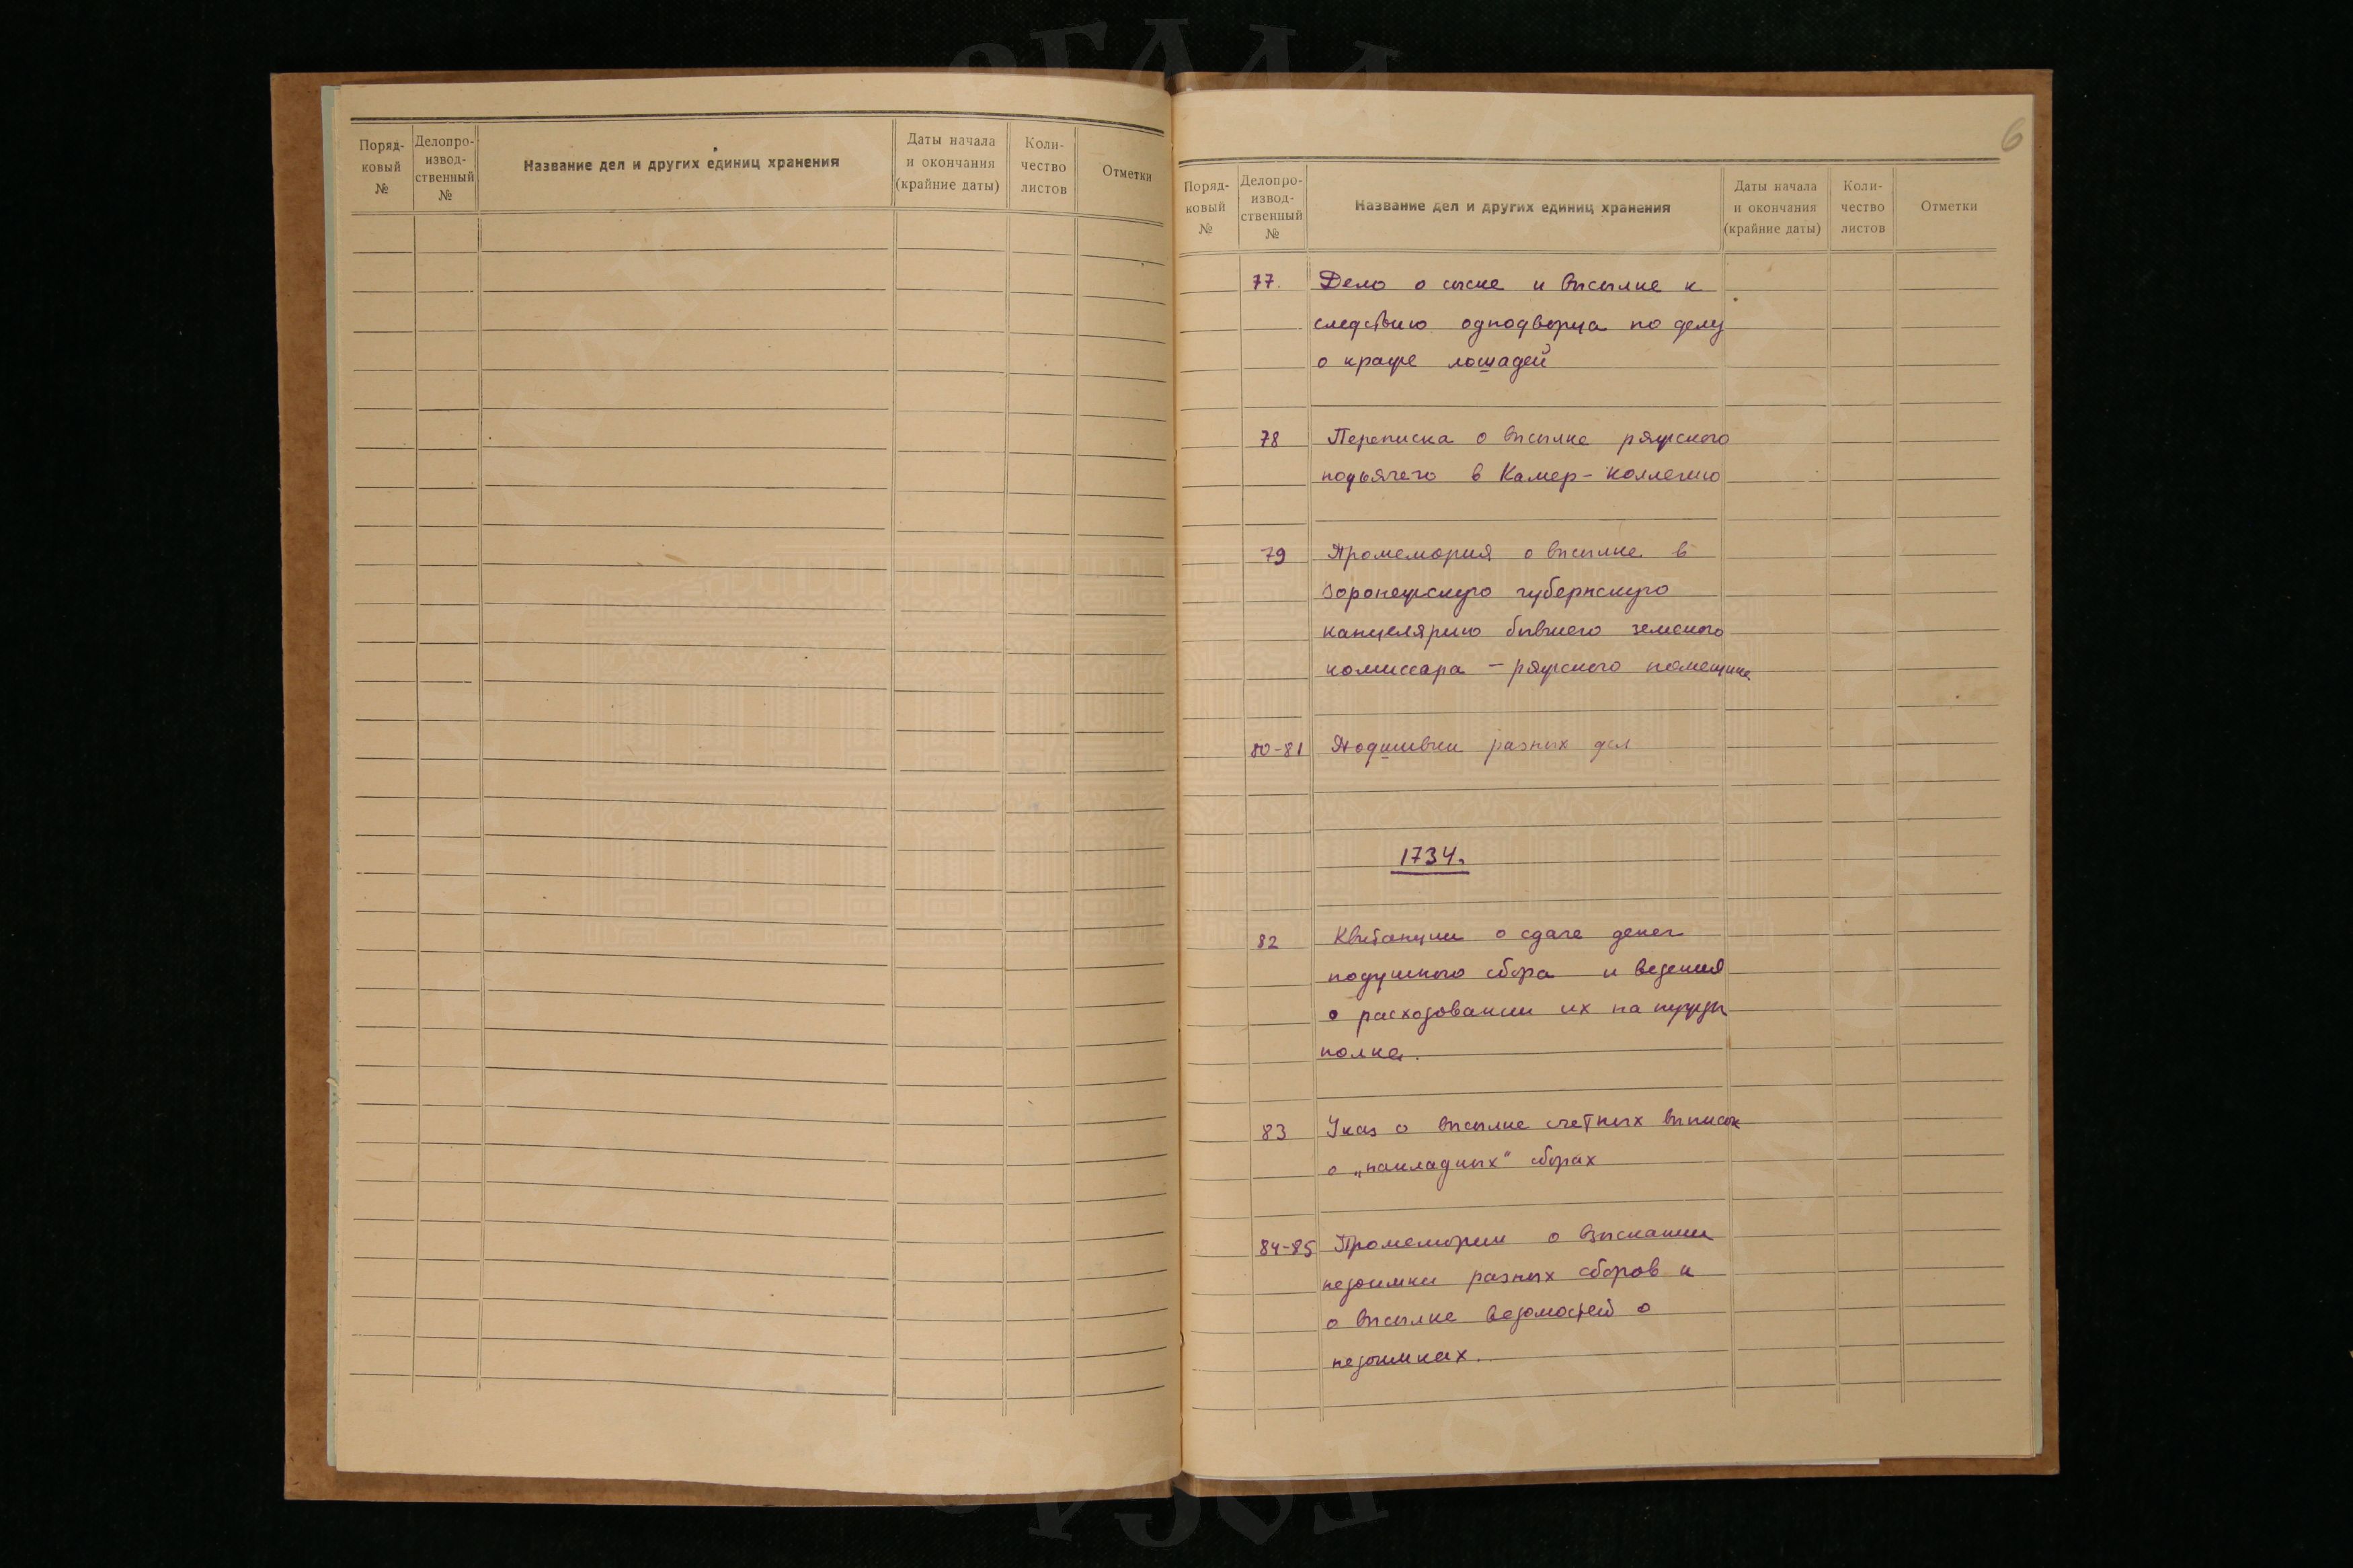 Поряд-
ковый
№
Делопро-
извод-
ственный
№
Название дел и других единиц хранения
Даты начала
и окончания
(крайние даты)
Коли-
чество
листов
Отметки
6
Поряд-
ковый
№
Делопро-
извод-
ственный
№
Название дел и других единиц хранения
Даты начала
и окончания
(крайние даты)
Коли-
чество
листов
Отметки
77. Дело о сыске и высылке к
следствию однодворца по делу
о краже лошадей
78 Переписка о высылке ряжского
подьячего в Камер-коллегию
79 Промемория о высылке в
Воронежскую губернскую
канцелярию бывшего земского
комиссара - ряжского помещика
80-81 Подшивки разных дел
1734.
82 Квитанции о сдаче денег
подушного сбора и ведения
о расходовании их на нужды
полка.
83 Указ о высылке счетных выписок
о „накладных" сборах
84-85 Промемории о взыскании
недоимки разных сборов и
о высылке ведомостей о
недоимках.